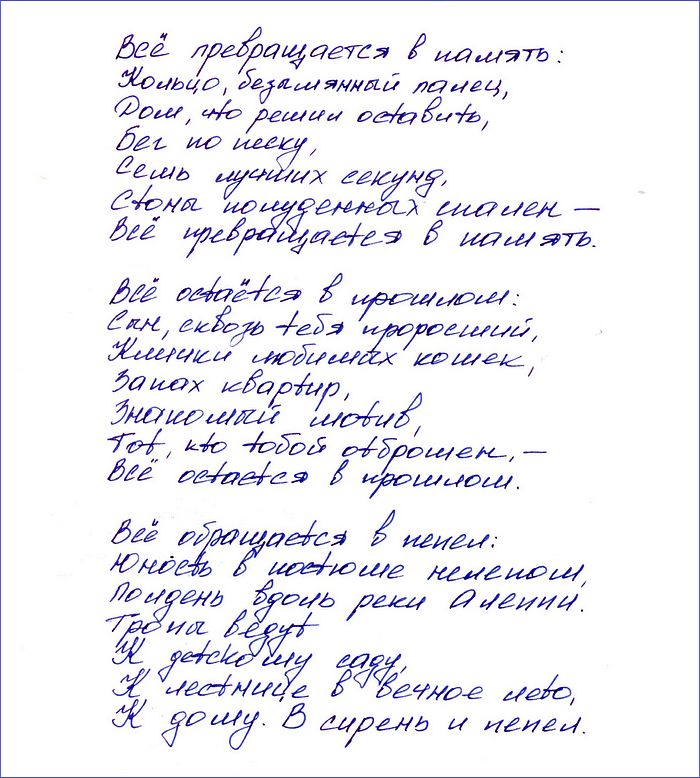 Всё превращается в память:
Кольцо, безымянный палец,
Дом, что решил оставить,
Бег по песку,
Семь лучших секунд,
Стоны полуденных спален —
Всё превращается в память.
Всё остаётся в прошлом:
Сын, сквозь тебя проросший,
Клички любимых кошек,
Запах квартир,
Знакомый мотив,
Тот, кто тобой отброшен, —
Всё остается в прошлом.
Всё обращается в пепел:
Юность в костюме нелепом,
Полдень вдоль реки Алепки.
Тропы ведут
К детскому саду,
К лестнице в вечное лето,
К дому. В сирень и пепел.